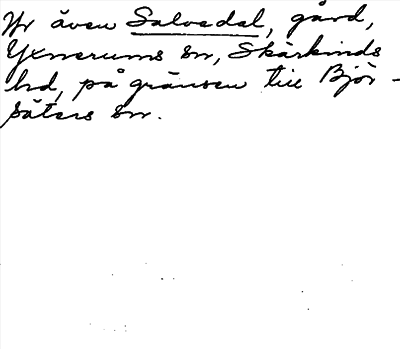 Jfr även Salvedal, gård,
Yxnerums sn, Skärkinds
hd, på gränsen till Björ-
säters sn.